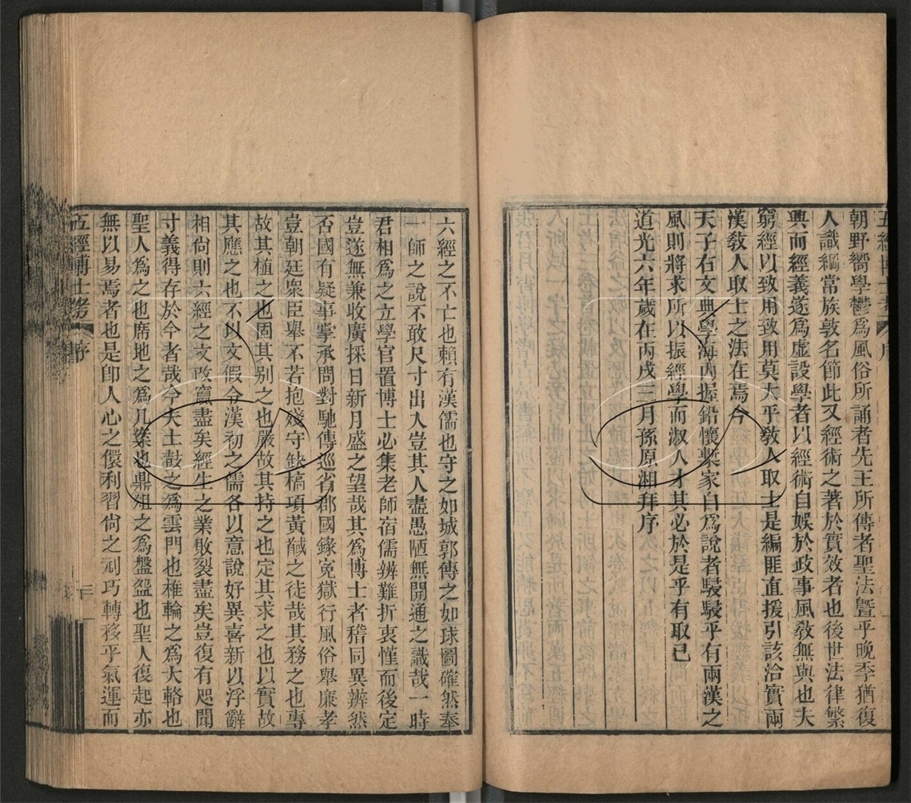 五經博士考 序
朝野嚮學鬱爲風俗所誦者先王所傳者聖法曁乎晚季猶復
人識綱常族敦名節此又經術之著於實效者也後世法律繁
興而經義遂爲虛設學者以經術自娛於政事風敎無與也夫
窮經以致用致用莫大乎敎人取士是編匪直援引該洽實兩
漢敎人取士之法在焉今
天子右文典學海內握鉛懷槧家自爲說者駸駸乎有兩漢之
風則將求所以振經學而淑人才其必於是乎有取已
道光六年歲在丙戌三月孫原湘拜序
六經之不亡也賴有漢儒也守之如城郭傳之如球圖確然奉
一師之說不敢尺寸出入豈其人盡愚陋無開通之識哉一時
君相爲之立學官置博士必集老師宿儒辨難折衷慬而後定
豈遂無兼收廣採日新月盛之望哉其爲博士者稽同異辨然
否國有疑事掌承問對馳傳巡省郡國錄寃獄行風俗舉廉孝
豈朝廷衆臣舉不若抱殘守缺槁項黃馘之徒哉其務之也專
故其植之也固其別之也嚴故其持之也定其求之也以實故
其應之也不以文假令漢初之儒各以意說好異喜新以浮辭
相尙則六經之文改竄盡矣經生之業敗裂盡矣豈復有咫聞
寸義得存於今者哉今夫土鼓之爲雲門也椎輪之爲大輅也
聖人爲之也席地之爲几筵也鼎俎之爲盤盌也聖人復起亦
無以易焉者也是卽人心之儇利習尙之刓巧轉移乎氣運而
五經博士考 序